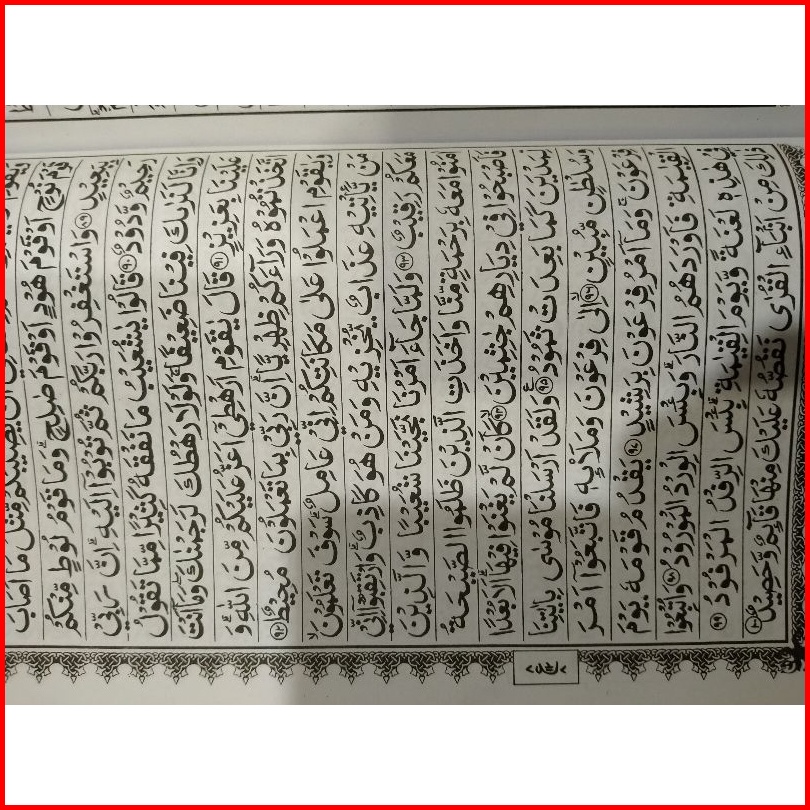 اَنْ يُّصِيْبَكُمْ مِّثْلُ مَاۤ اَصَابَ
قَوْمَ نُوْحٍ اَوْ قَوْمَ هُوْدٍ اَوْ قَوْمَ صٰلِحٍ ؕ وَمَا قَوْمُ لُوْطٍ مِّنْكُمْ
بِبَعِيْدٍ ﴿۸۹﴾ وَاسْتَغْفِرُوْا رَبَّكُمْ ثُمَّ تُوْبُوْۤا اِلَيْهِ ؕ اِنَّ رَبِّيْ
رَحِيْمٌ وَّدُوْدٌ ﴿۹۰﴾ قَالُوْا يٰشُعَيْبُ مَا نَفْقَهُ كَثِيْرًا مِّمَّا تَقُوْلُ
وَاِنَّا لَنَرٰىكَ فِيْنَا ضَعِيْفًا ۚ وَلَوْلَا رَهْطُكَ لَرَجَمْنٰكَ ؗ وَمَاۤ اَنْتَ
عَلَيْنَا بِعَزِيْزٍ ﴿۹۱﴾ قَالَ يٰقَوْمِ اَرَهْطِيْۤ اَعَزُّ عَلَيْكُمْ مِّنَ اللّٰهِ ؕ وَ
اتَّخَذْتُمُوْهُ وَرَآءَكُمْ ظِهْرِيًّا ؕ اِنَّ رَبِّيْ بِمَا تَعْمَلُوْنَ مُحِيْطٌ ﴿۹۲﴾
وَيٰقَوْمِ اعْمَلُوْا عَلٰى مَكَانَتِكُمْ اِنِّيْ عَامِلٌ ؕ سَوْفَ تَعْلَمُوْنَ ۙ
مَنْ يَّاْتِيْهِ عَذَابٌ يُّخْزِيْهِ وَمَنْ هُوَ كَاذِبٌ ؕ وَارْتَقِبُوْۤا اِنِّيْ
مَعَكُمْ رَقِيْبٌ ﴿۹۳﴾ وَلَمَّا جَآءَ اَمْرُنَا نَجَّيْنَا شُعَيْبًا وَّالَّذِيْنَ
اٰمَنُوْا مَعَهٗ بِرَحْمَةٍ مِّنَّا وَاَخَذَتِ الَّذِيْنَ ظَلَمُوا الصَّيْحَةُ
فَاَصْبَحُوْا فِيْ دِيَارِهِمْ جٰثِمِيْنَ ﴿۹۴﴾ كَاَنْ لَّمْ يَغْنَوْا فِيْهَا ؕ اَلَا بُعْدًا
لِّمَدْيَنَ كَمَا بَعِدَتْ ثَمُوْدُ ﴿۹۵﴾ وَلَقَدْ اَرْسَلْنَا مُوْسٰى بِاٰيٰتِنَا
وَسُلْطٰنٍ مُّبِيْنٍ ﴿۹۶﴾ اِلٰى فِرْعَوْنَ وَمَلَا۠ئِهٖ فَاتَّبَعُوْۤا اَمْرَ
فِرْعَوْنَ ۚ وَمَاۤ اَمْرُ فِرْعَوْنَ بِرَشِيْدٍ ﴿۹۷﴾ يَقْدُمُ قَوْمَهٗ يَوْمَ
الْقِيٰمَةِ فَاَوْرَدَهُمُ النَّارَ ؕ وَبِئْسَ الْوِرْدُ الْمَوْرُوْدُ ﴿۹۸﴾ وَاُتْبِعُوْا
فِيْ هٰذِهٖ لَعْنَةً وَّيَوْمَ الْقِيٰمَةِ ؕ بِئْسَ الرِّفْدُ الْمَرْفُوْدُ ﴿۹۹﴾
ذٰلِكَ مِنْ اَنْۢبَآءِ الْقُرٰى نَقُصُّهٗ عَلَيْكَ مِنْهَا قَآئِمٌ وَّحَصِيْدٌ ﴿۱۰۰﴾